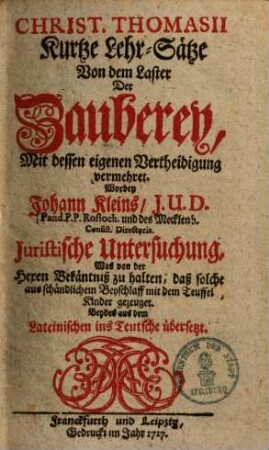 CHRIST. THOMASII
Kurtze Lehr-Sätze
Von dem Laster
Der
Zauberey,
Mit dessen eigenen Vertheidigung
vermehret.
Worbey
Johann Kleins, J.U.D.
Pand. P.P. Rostoch. und des Mecklenb.
Consist. Directoris.
Juristische Untersuchung,
Was von der
Hexen Bekäntniß zu halten, daß solche
aus schändlichem Beyschlaff mit dem Teuffel
Kinder gezeuget.
Beydes aus dem
Lateinischen ins Teutsche übersetzt.
Franckfurth und Leipzig,
Gedruckt im Jahr 1717.